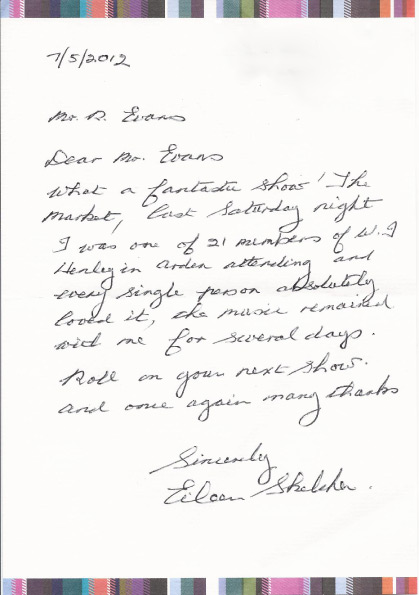 7/5/2012
Mr. R. Evans
Dear Mr. Evans
What a fantastic show! The
Market, last Saturday night
I was one of 21 members of W.I
Henley in Arden attending and
every single person absolutely
loved it, the music remained
with me for several days.
Roll on your next show.
and once again many thanks
Sincerely
Eileen